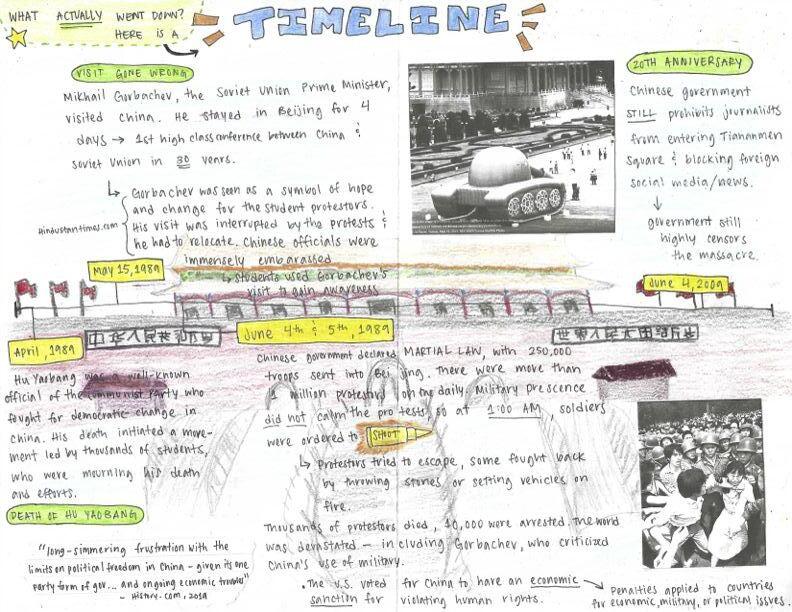 WHAT ACTUALLY WENT DOWN?
HERE IS A
TIMELINE
VISIT GONE WRONG
Mikhail Gorbachev, the Soviet Union Prime Minister,
visited China. He stayed in Beijing for 4
days → 1st high class conference between China &
Soviet Union in 30 years.
↳ Gorbachev was seen as a symbol of hope
and change for the student protestors.
His visit was interrupted by the protests &
he had to relocate. Chinese officials were
immensely embarassed
↳ students used Gorbachev's
visit to gain awareness
hindustantimes.com
May 15, 1989
20TH ANNIVERSARY
Chinese government
STILL prohibits journalists
from entering Tiananmen
Square & blocking foreign
social media/news.
↓
government still
highly censors
the massacre.
June 4, 2009
中华人民共和国
世界人民大团结
April, 1989
Hu Yaobang was a well-known
official of the communist Party who
fought for democratic change in
China. His death initiated a move-
ment led by thousands of students,
who were mourning his death
and efforts.
DEATH OF HU YAOBANG
"long-simmering frustration with the
limits on political freedom in China - given its one
party form of gov... and ongoing economic trouble"
- History.com,
June 4th & 5th, 1989
Chinese government declared MARTIAL LAW, with 250,000
troops sent into Beijing. There were more than
1 million protestors on the daily. Military prescence
did not calm the protests, so at 1:00 AM, soldiers
were ordered to SHOOT
↳ Protestors tried to escape, some fought back
by throwing stones or setting vehicles on
fire.
Thousands of protestors died, 10,000 were arrested. The world
was devastated - including Gorbachev, who criticized
China's use of military.
• The U.S. voted for China to have an economic
sanction for violating human rights.
→ Penalties applied to countries
for economic, military, or political issues.